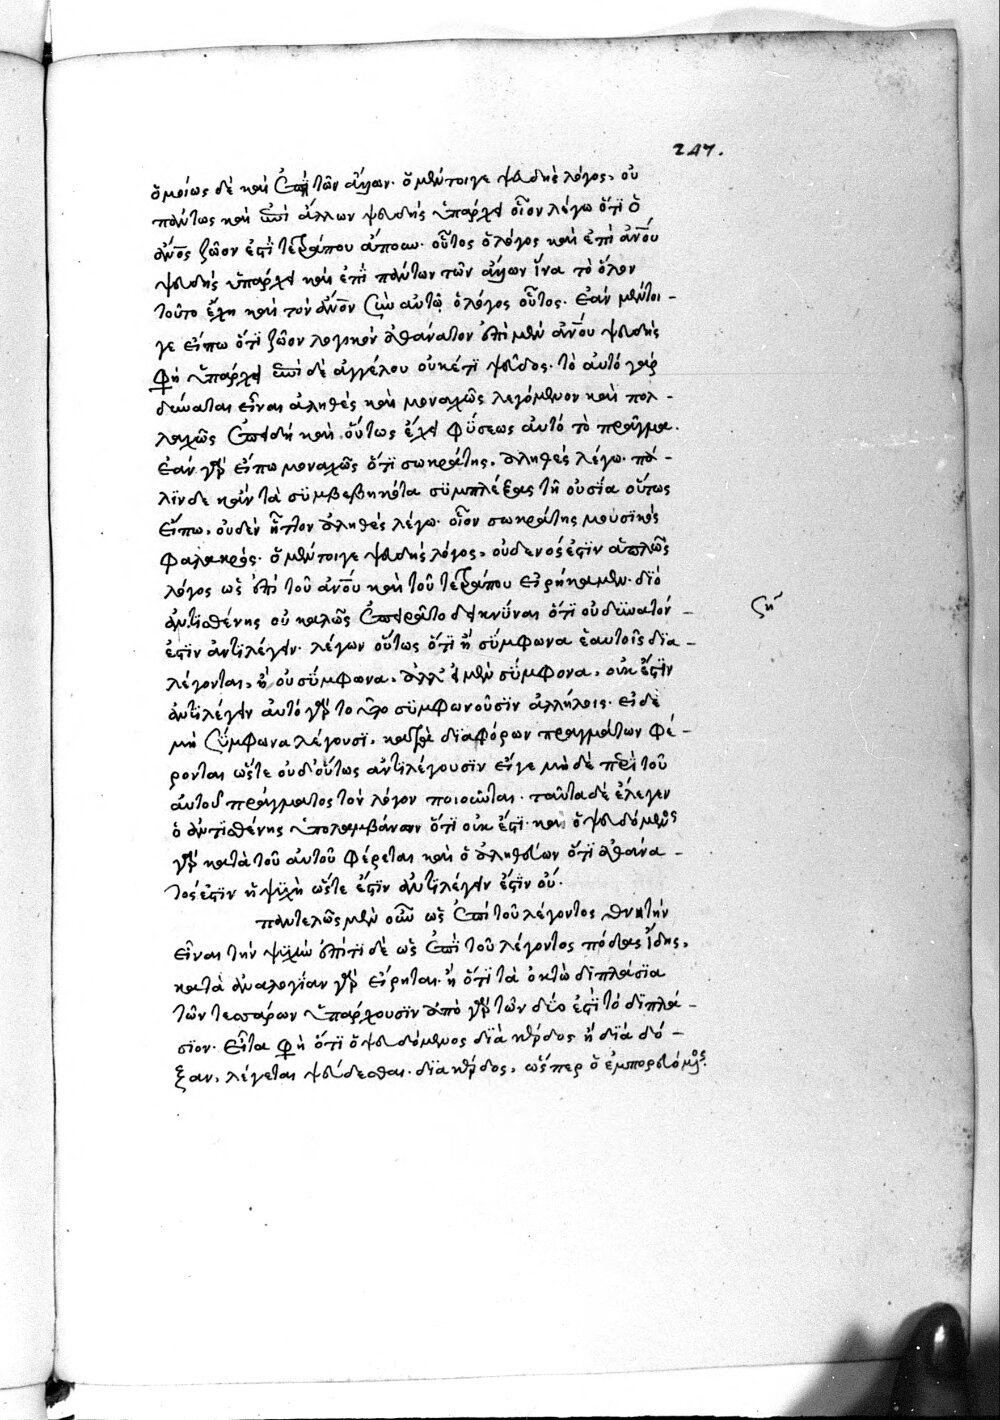 247.
ὁμοίως δὲ καὶ ἐπὶ τῶν ἄλλων. ὁ μέντοιγε ψευδὴς λόγος, οὐ
πάντως καὶ ἐπὶ ἄλλων ψευδὴς ὑπάρχει οἷον λέγω ὅτι ὁ
ἄνος ζῶον ἐστὶ τετράπουν ἄπουν. οὗτος ὁ λόγος καὶ ἐπὶ ἀνου
ψευδὴς ὑπάρχει καὶ ἐπὶ πάντων τῶν ἄλλων ἵνα τὸ ὅλον
τοῦτο ἔχη καὶ τὸν ἄνον σὺν αὐτῷ ὁ λόγος οὗτος. ἐὰν μέντοι-
γε εἴπω ὅτι ζῶον λογικὸν ἀθάνατον ἐπὶ μὲν ἀνου ψευδὴς
ὑπάρχει ἐπὶ δὲ ἀγγέλου οὐκέτι ψεῦδος. τὸ αὐτὸ γὰρ
δύναται εἶναι ἀληθὲς καὶ μοναχῶς λεγόμενον καὶ πολ-
λαχῶς ἐπειδὴ καὶ οὕτως ἔχει φύσεως αὐτὸ τὸ πρᾶγμα.
ἐὰν γὰρ εἴπω μοναχῶς ὅτι σωκράτης, ἀληθὲς λέγω. πά-
λιν δε κἂν τὰ συμβεβηκότα συμπλέξας τῇ οὐσία οὕτως
εἴπω, οὐδὲν ἧττον ἀληθὲς λέγω. οἷον σωκράτης μουσικὸς
φαλακρός. ὁ μέντοιγε ψευδὴς λόγος, οὐδενός ἐστιν ἁπλῶς
λόγος ὡς ἐπὶ τοῦ ἀνου καὶ τοῦ τετράπου εἰρήκαμεν. διὸ
ἀντισθένης οὐ καλῶς ἐπειρᾶτο δεικνύναι ὅτι οὐ δυνατόν-
ἐστιν ἀντιλέγειν. λέγων οὕτως ὅτι ἢ σύμφωνα ἑαυτοῖς δια-
λέγονται, ἢ οὐ σύμφωνα. ἀλλ' εἰ μὲν σύμφονα, οὐκ ἔστιν
ἀντιλέγειν αὐτὸ γὰρ το συμφωνοῦσιν ἀλλήλοις. εἰ δὲ
μὴ σύμφωνα λέγουσι, διαφόρων πραγμάτων φέ-
ρονται ὥστε οὐδ' οὕτως ἀντιλέγουσιν εἴγε μὴ δὲ περὶ τοῦ
αὐτοῦ πράγματος τὸν λόγον ποιοῦνται. ταῦτα δὲ ἔλεγεν
ὁ ἀντισθένης ὑπολαμβάνων ὅτι οὐκ ἔστι. καὶ ὁ ψευδόμενος
γὰρ κατὰ τοῦ αὐτοῦ φέρεται καὶ ὁ ἀληθεύων ὅτι ἀθάνα-
τος ἐστιν ἡ ψυχὴ ὥστε ἔστιν ἀντιλέγειν ἔστιν οὐ.
παντελῶς μὲν οὖν ὡς ἐπὶ τοῦ λέγοντος θνητὴν
εἶναι τὴν ψυχὴν ἐπί τι δὲ ὡς ἐπὶ τοῦ λέγοντος
κατὰ ἀναλογίαν γὰρ εἴρηται. ἢ ὅτι τὰ ὀκτὼ διπλάσια
τῶν τεσσάρων ὑπάρχουσιν ἀπὸ γὰρ τῶν δύο ἐστὶ τὸ διπλά-
σιον. εἶτα φησὶ ὅτι ὁ ψευδόμενος διὰ κέρδος ἢ διὰ δό-
ξαν, λέγεται ψεύδεσθαι. διὰ κέρδος, ὥσπερ ὁ ἐμπορευόμενος.